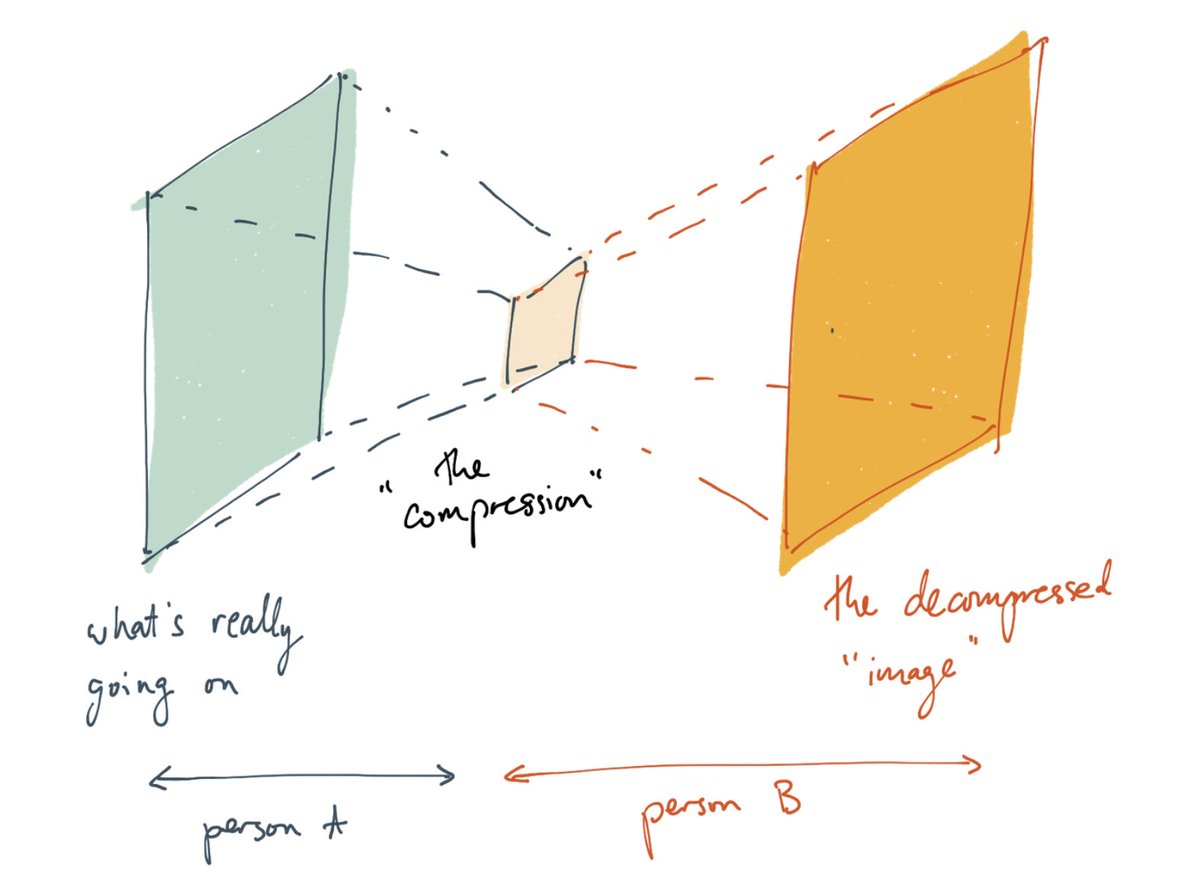 "the
compression"
what's really
going on
the decompressed
"image"
person A
person B